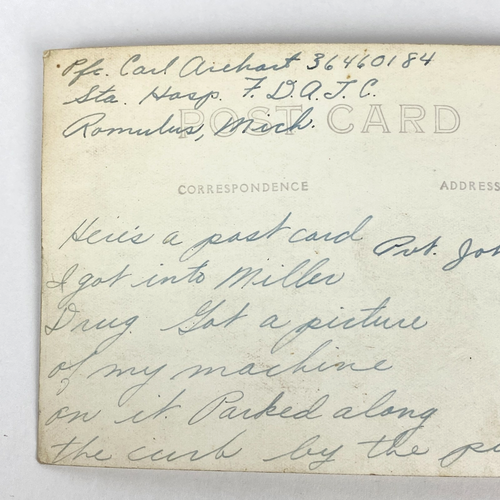 Pfc. Carl Arehart 36460184
Sta. Hosp. F.D.A.T.C.
Romulus, Mich.
POST CARD
CORRESPONDENCE
ADDRESS
Here's a post card
Pvt. Joh
I got into Miller
Drug. Got a picture
of my machine
on it. Parked along
the curb by the